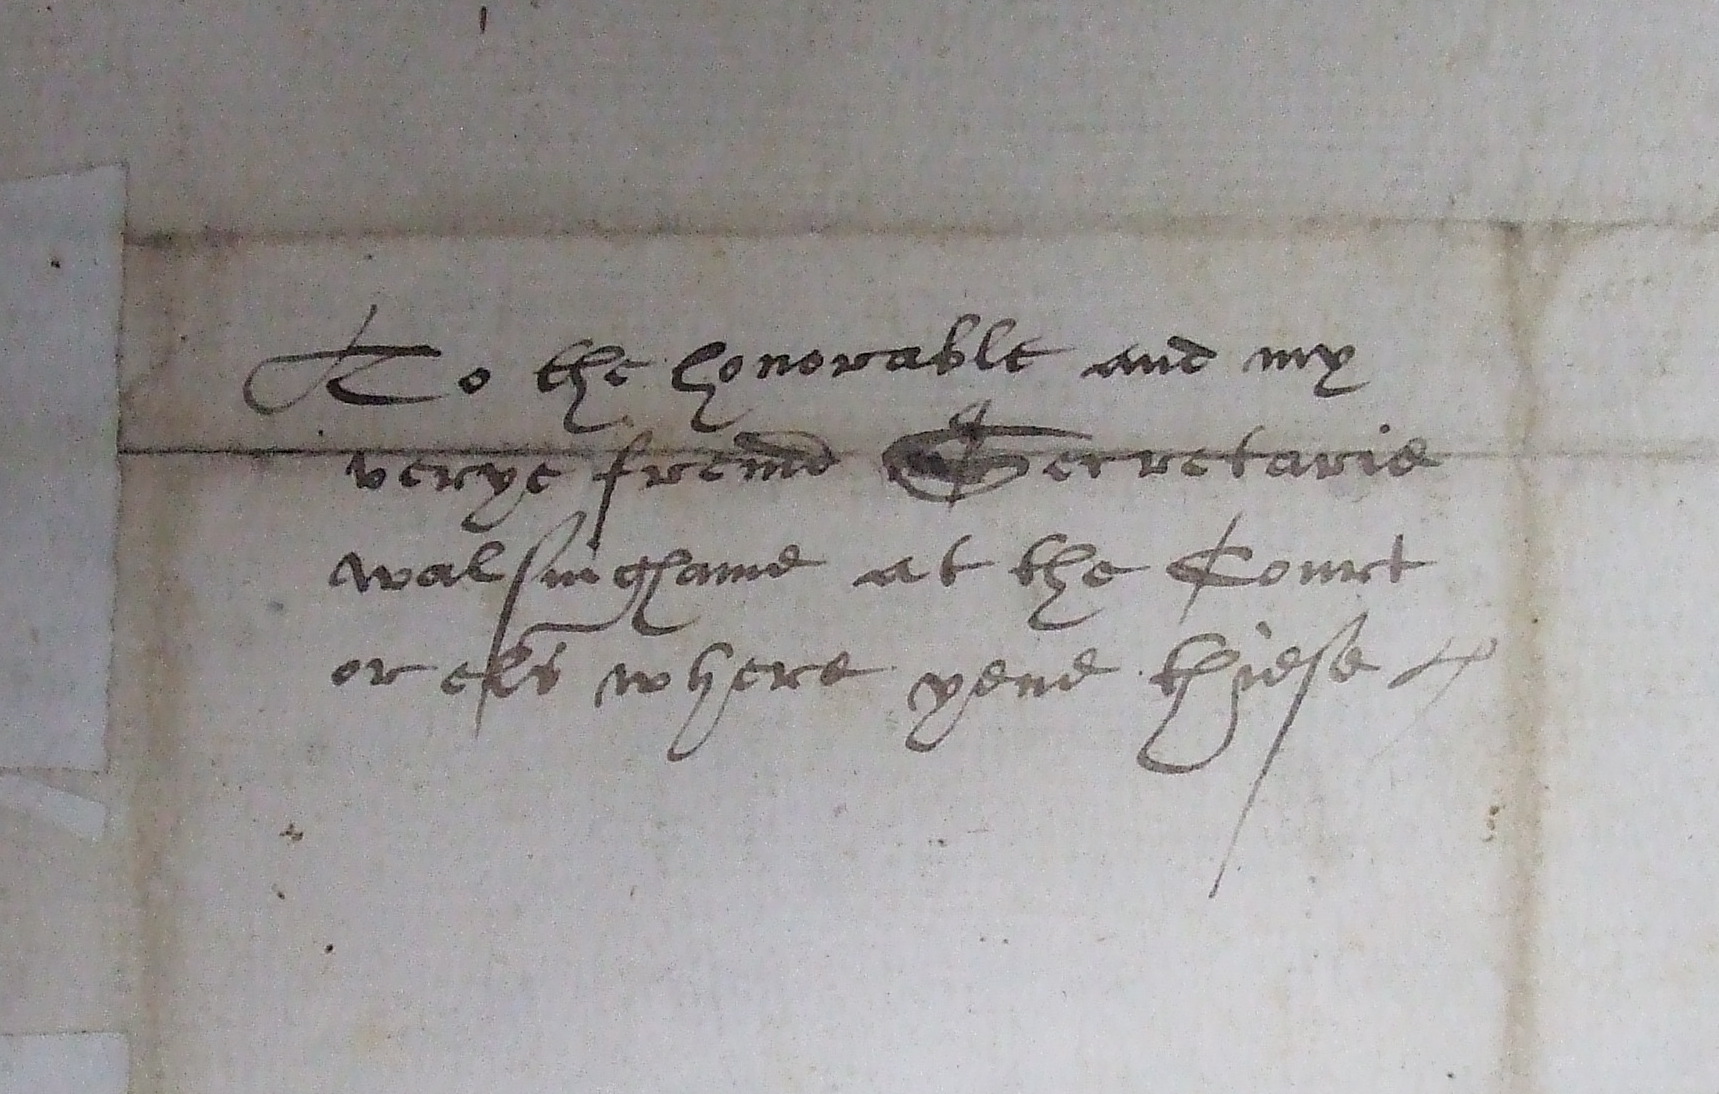 To the honorable and my
verye freind Secretarie
walsinghame at the Court
or els where yeue thiese